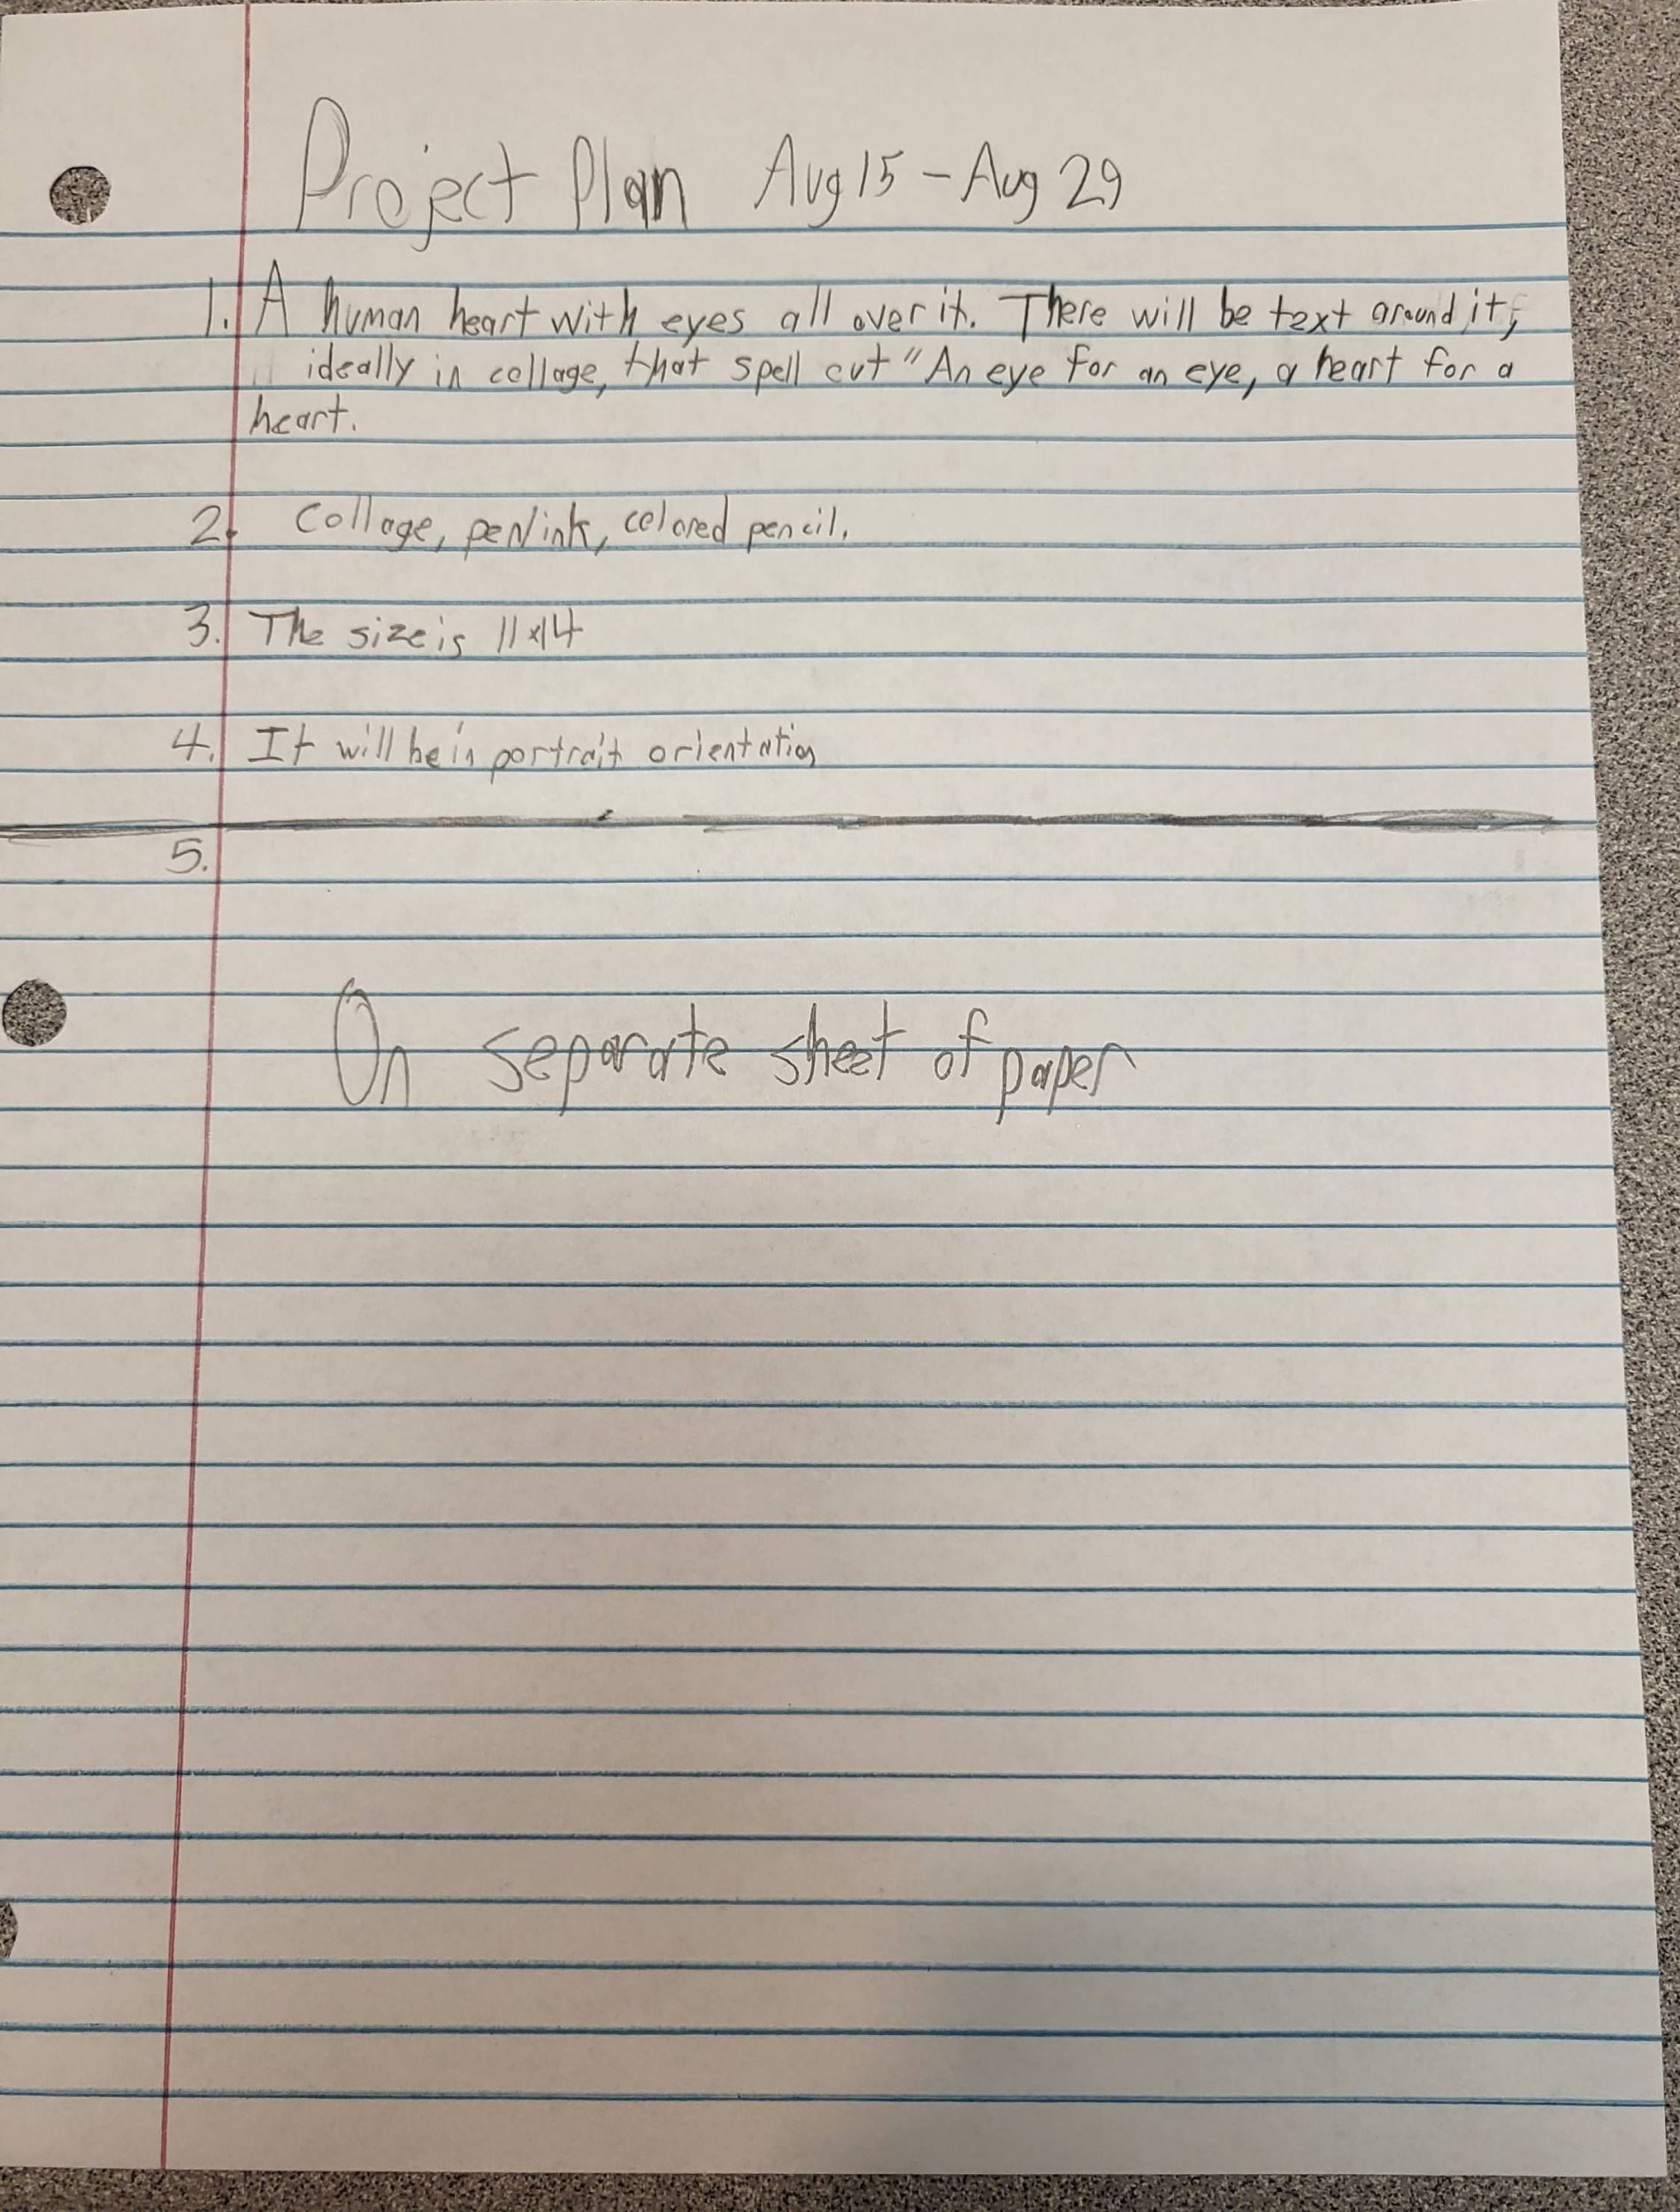 Project Plan Aug 15 - Aug 29
1. A human heart with eyes all over it. There will be text around it,
ideally in collage, that spell out "An eye for an eye, a heart for a
heart.
2. Collage, pen/ink, colored pencil.
3. The size is 11x14
4. It will be in portrait orientation
5.
On separate sheet of paper